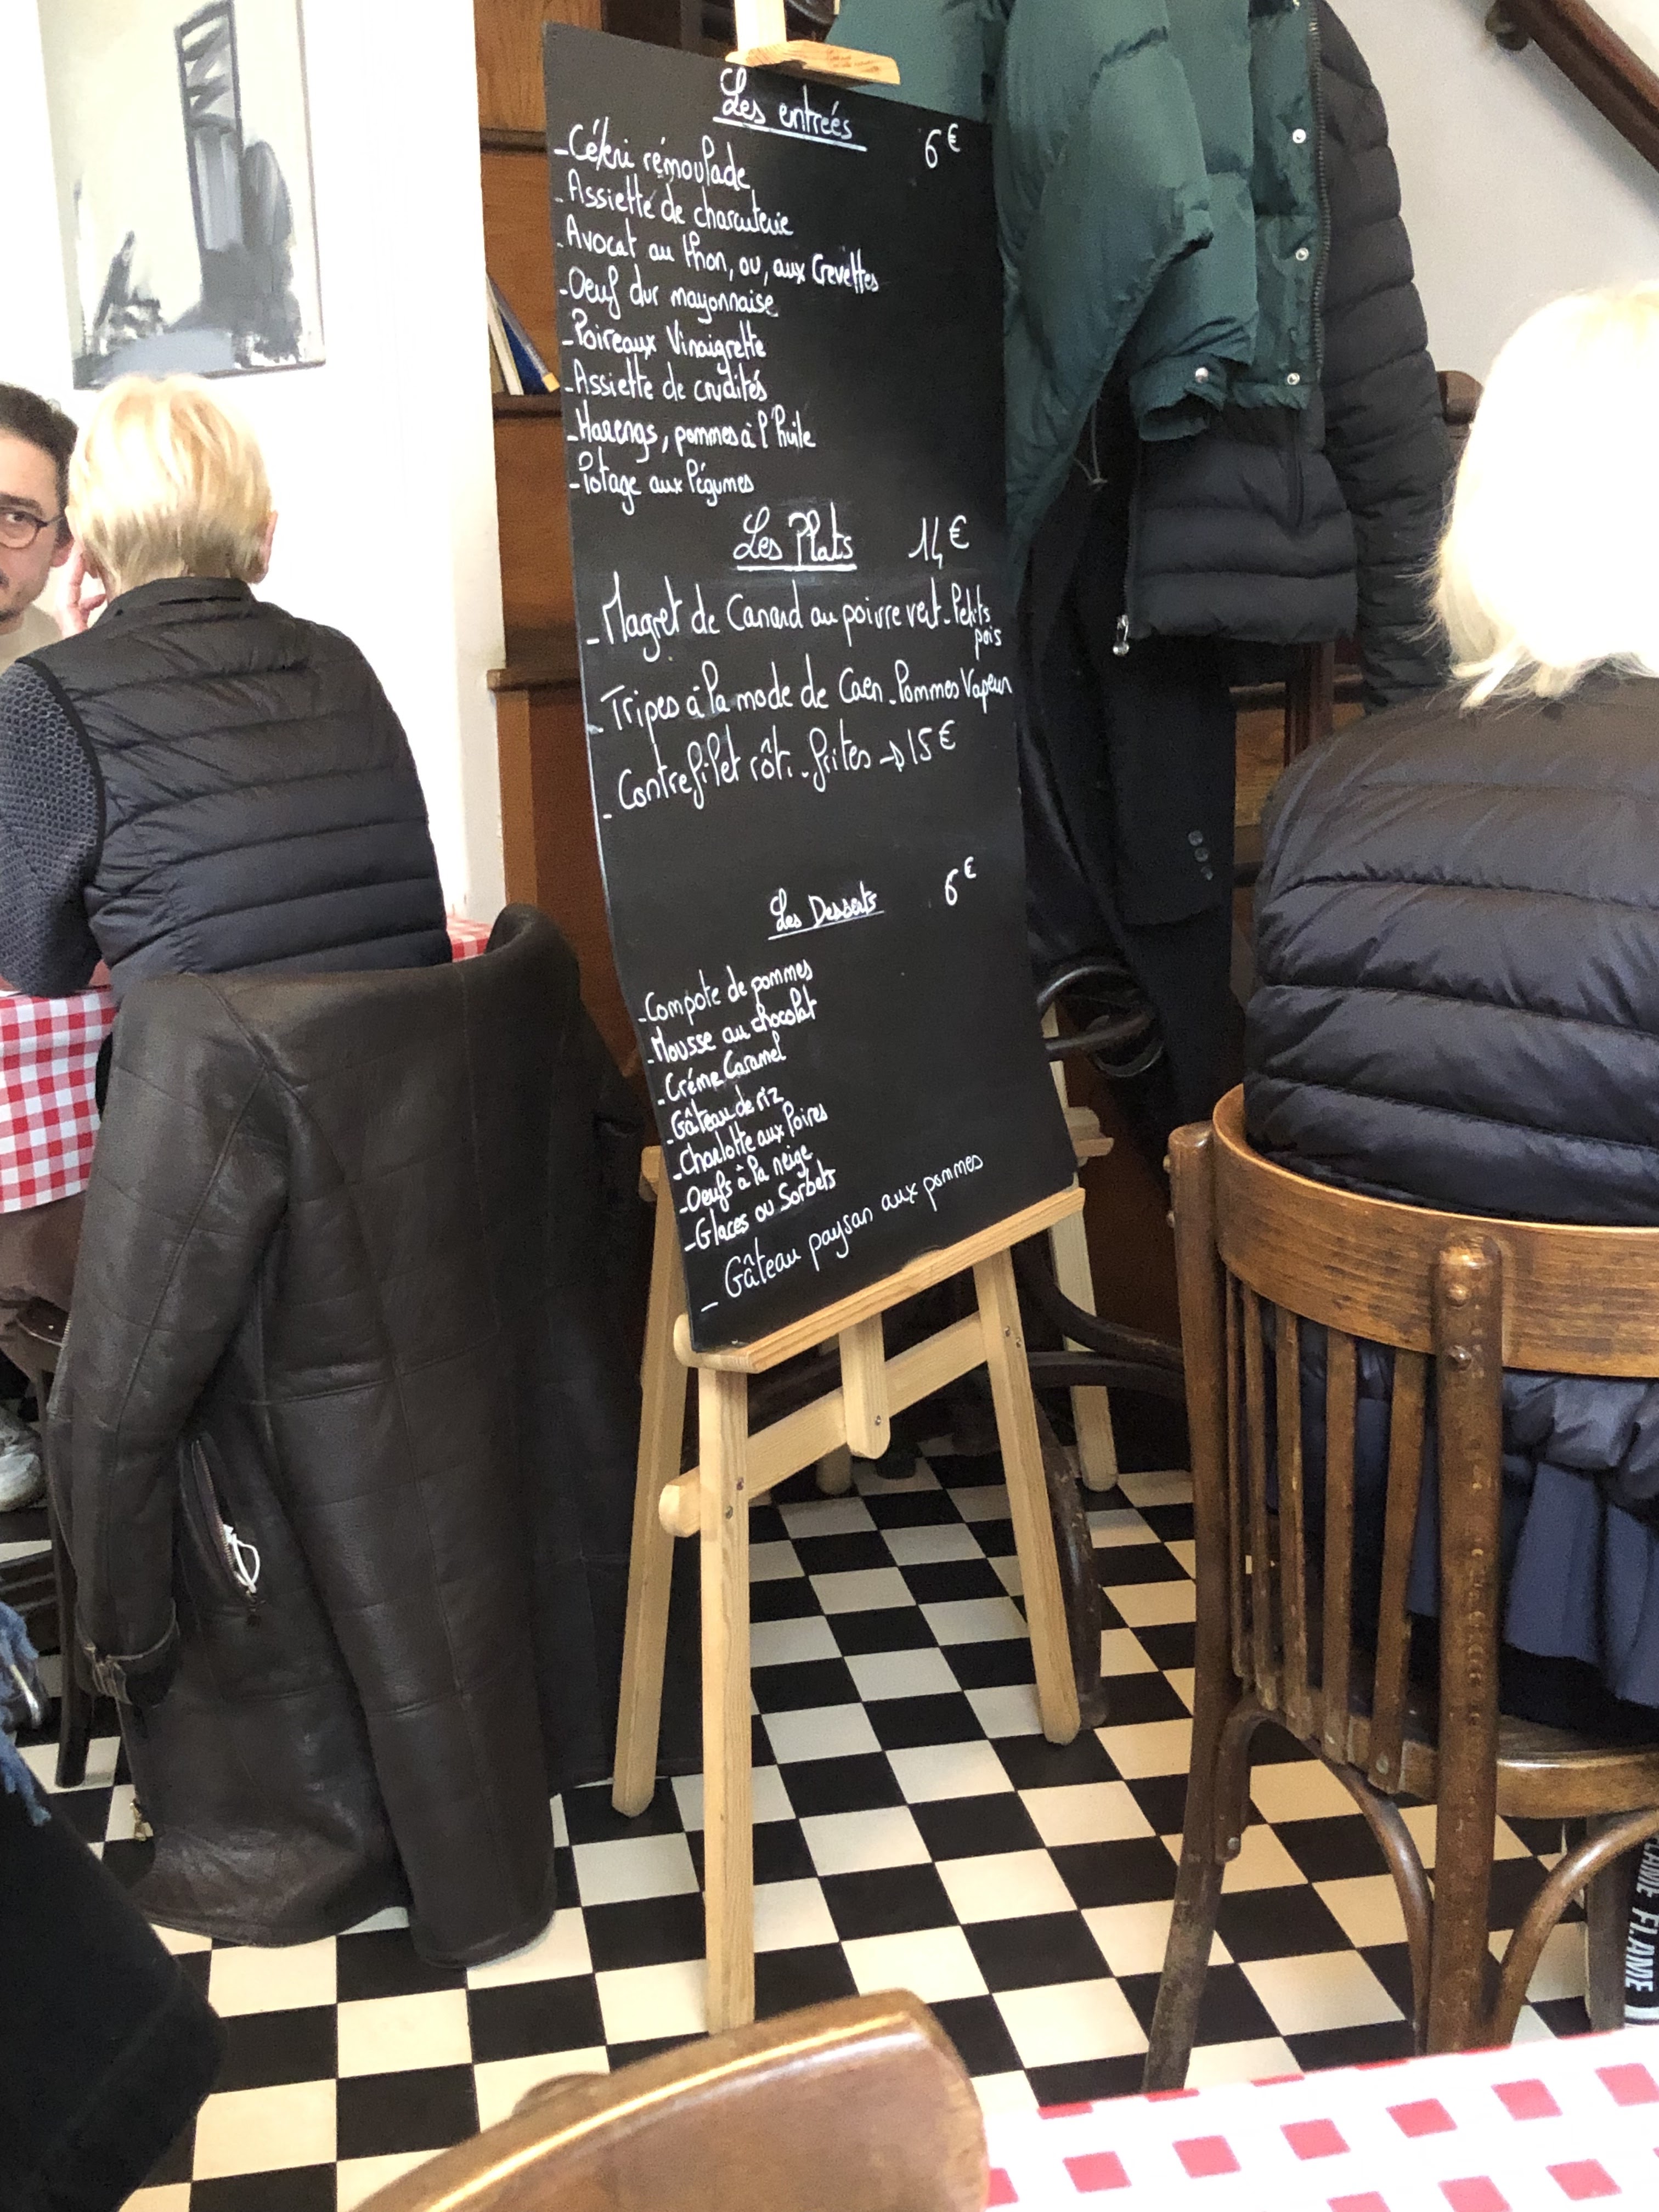 Les entrées 6€
- Céleri rémoulade
- Assiette de charcuterie
- Avocat au thon, ou, aux Crevettes
- Oeuf dur mayonnaise
- Poireaux Vinaigrette
- Assiette de crudités
- Harengs, pommes à l'huile
- Potage aux légumes
Les Plats 14€
- Magret de Canard au poivre vert - Petits
pois
- Tripes à la mode de Caen - Pommes Vapeur
- Contrefilet rôti - frites → 15€
Les Desserts 6€
- Compote de pommes
- Mousse au chocolat
- Créme Caramel
- Gâteau de riz
- Charlotte aux Poires
- Oeufs à la neige
- Glaces ou Sorbets
- Gâteau paysan aux pommes
FLAME